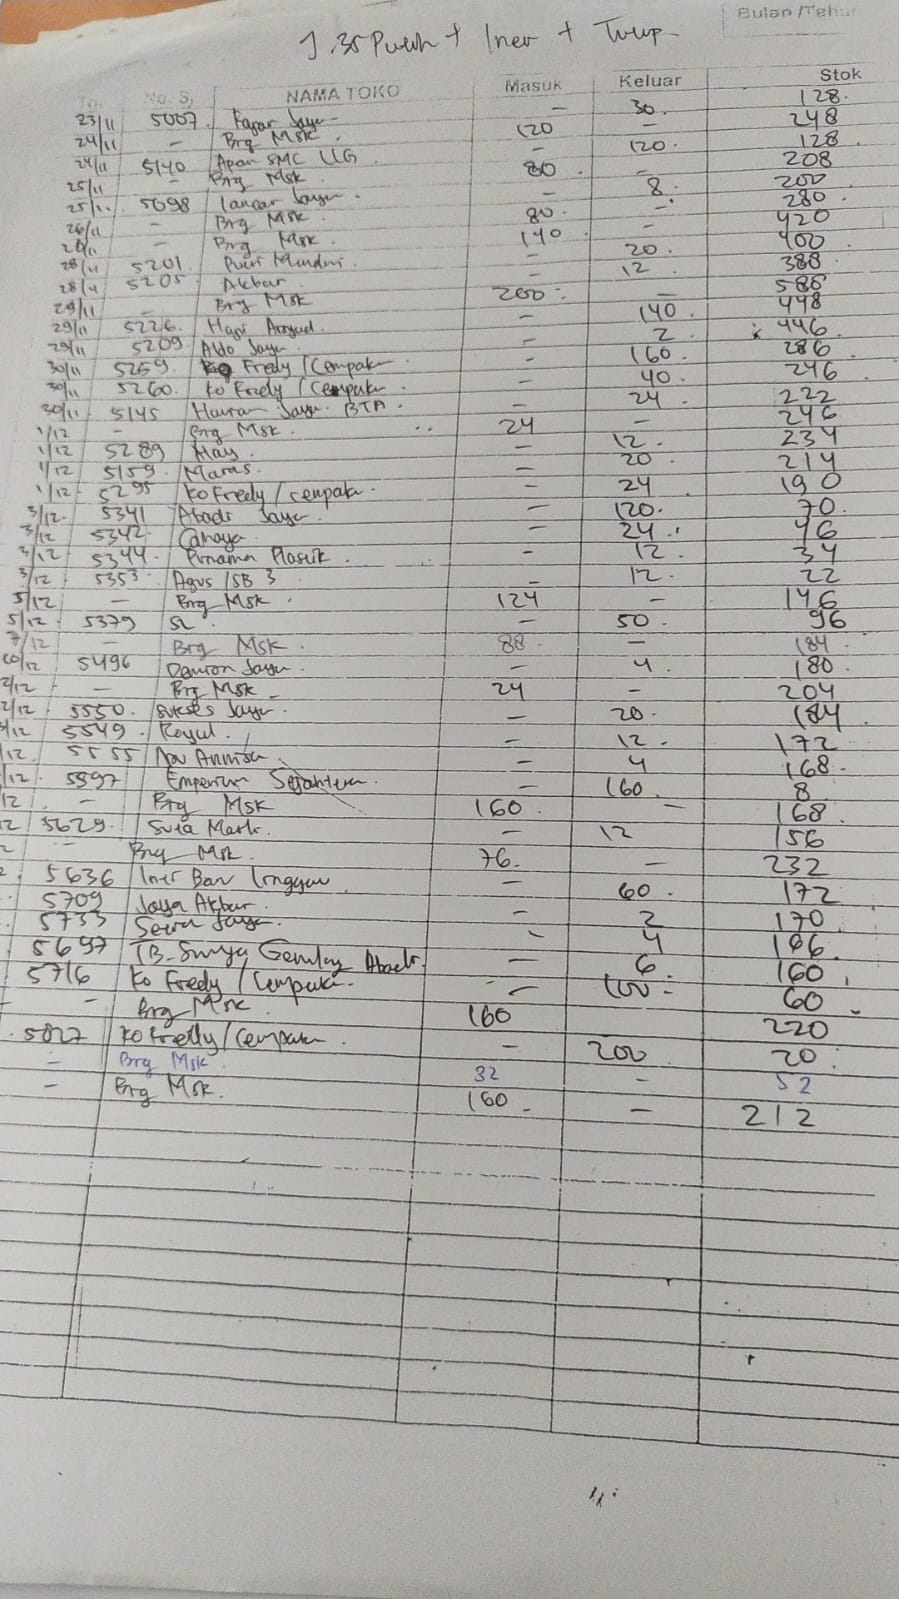 Bulan /Tahun
J.35 Putih + Iner + Tutup
No. S, NAMA TOKO Masuk Keluar Stok
23/11 5007 Fajar Jaya - 30. 128.
24/11 - Brg Msk. 120 - 248
24/11 5140 Apan SMC LLG - 120. 128
25/11 - Brg Msk. 80 - 208
25/11. 5098 Lancar Jaya. - 8. 200
26/11 - Brg Msk. 80. - 280
26/11 - Brg Msk. 140 - 420
28/11 5201 Putri Mandiri. - 20. 400
28/11 5205 Akbar. - 12. 388
29/11 - Brg Msk 200 - 588
29/11 5226. Haji - 140. 448
29/11 5209. Aldo Jaya. - 2. 446
30/11 5259. Ko Fredy / Cempaka. - 160. 286
30/11 5260. Ko Fredy / Cempaka. - 40. 246
30/11 5145 Jaya. BTA. - 24. 222
1/12 - Brg Msk. 24 - 246
1/12 5289 May. - 12. 234
1/12 5159. Maras. - 20. 214
1/12 5295 Ko Fredy / Cempaka. - 24 190
3/12. 5341 Abadi Jaya. - 120. 70.
3/12 5342. Cahaya. - 24. 46
3/12 5344. Purnama Plastik. - 12. 34
3/12 5353. Agus /SB 3 - 12. 22
5/12 - Brg Msk. 124 - 146
5/12. 5379 SL. - 50. 96
7/12 - Brg Msk. 88. - 184.
10/12 5496 Jaya. - 4. 180.
2/12 - Brg Msk 24 - 204
2/12. 5550. Sukses Jaya. - 20. 184
/12 5549. Royal. - 12. 172
/12 5555 - 4 168.
/12. 5597 Emperium - 160. 8
12 - Brg Msk 160. - 168.
12 5629. Mart. - 12 156
2 - Brg Msk. 76. - 232
5636 Iner Ban Linggau - 60. 172
5709 Jaya Akbar. - 2 170
5733 Jaya. - 4 166
5697 TB. Surya Gemilang Abadi. - 6 160.
5716 Ko Fredy / Cempaka. - 100. 60
- Brg Msk. 160 220
5827 Ko Fredy / Cempaka. - 200 20.
- Brg Msk. 32 - 52
- Brg Msk. 160 - 212